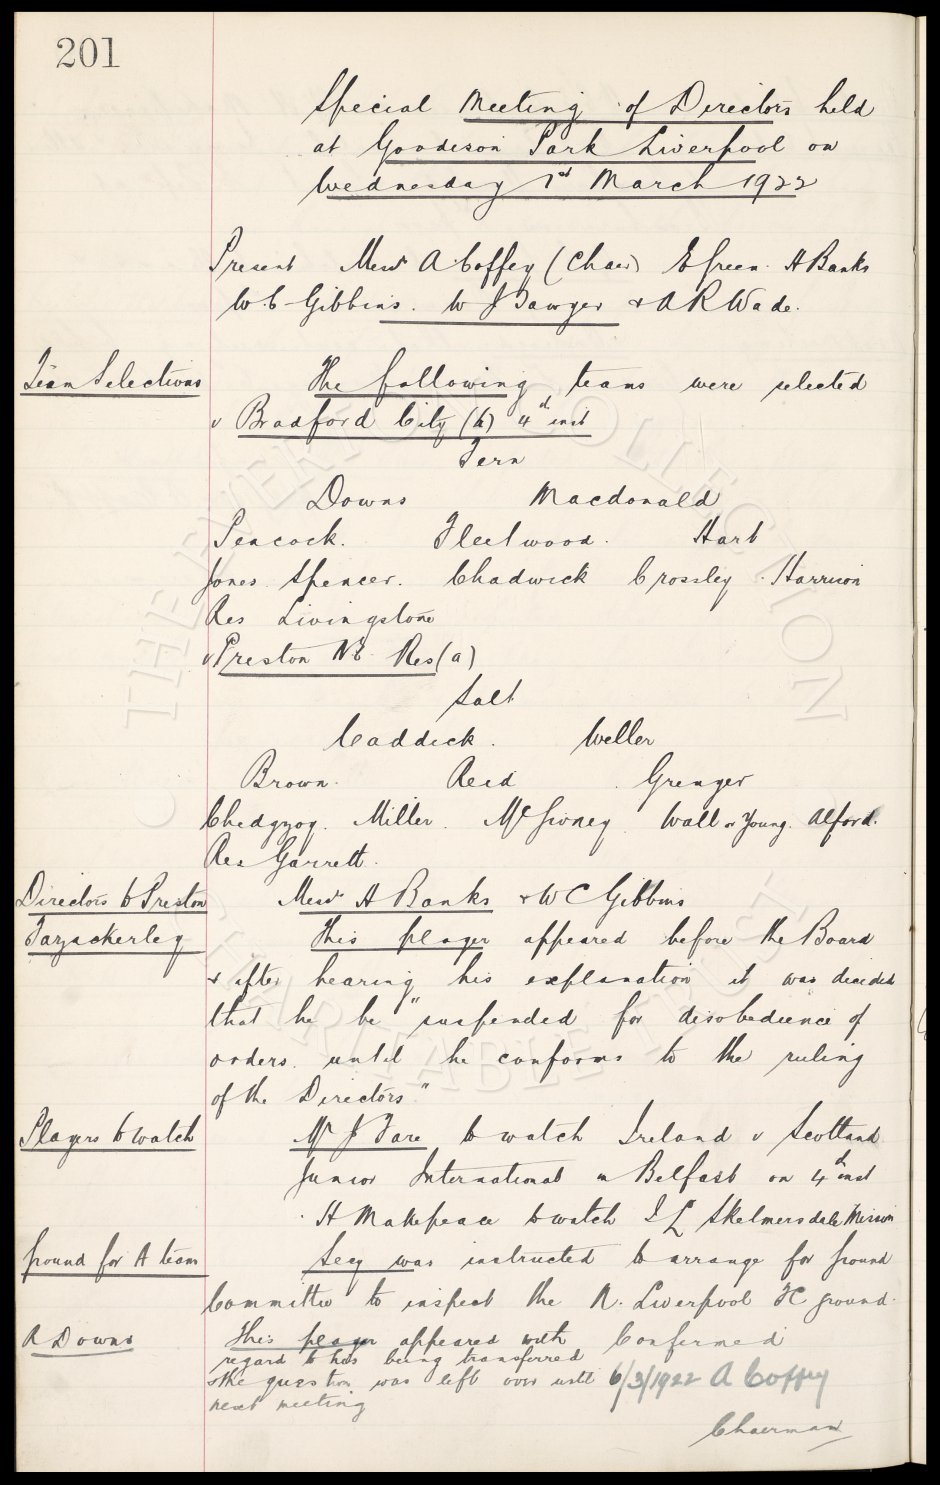 201
Special Meeting of Directors held
at Goodison Park Liverpool on
Wednesday 1st March 1922
Present Messrs A Coffey (Chair) E Green. A Banks
W C Gibbins. W J Sawyer & A R Wade.
Team Selections The following teams were selected
v Bradford City (h) 4th inst
Fern
Downs Macdonald
Peacock. Fleetwood. Hart
Jones. Spencer. Chadwick Crossley. Harrison
Res Livingstone
v Preston N E Res (a)
Salt
Caddick. Weller
Brown. Reid Grenyer
Chedgzoy. Miller. McGivney Wall or Young. Alford.
Res Garrett.
Directors to Preston Messrs A Banks & W C Gibbins
Fazackerley This player appeared before the Board
& after hearing his explanation it was decided
that he be "suspended for disobedience of
orders until he conforms to the ruling
of the Directors"
Players to watch Mr J Fare to watch Ireland v Scotland
Junior International in Belfast on 4th inst
H Makepeace to watch Skelmersdale Mission
Ground for A team Secy was instructed to arrange for Ground
Committee to inspect the N. Liverpool FC ground.
R Downs This player appeared with Confirmed
regard to his being transferred
& the question was left over until 6/3/1922 A Coffey
next meeting
Chairman
THE EVERTON COLLECTION
CHARITABLE TRUST